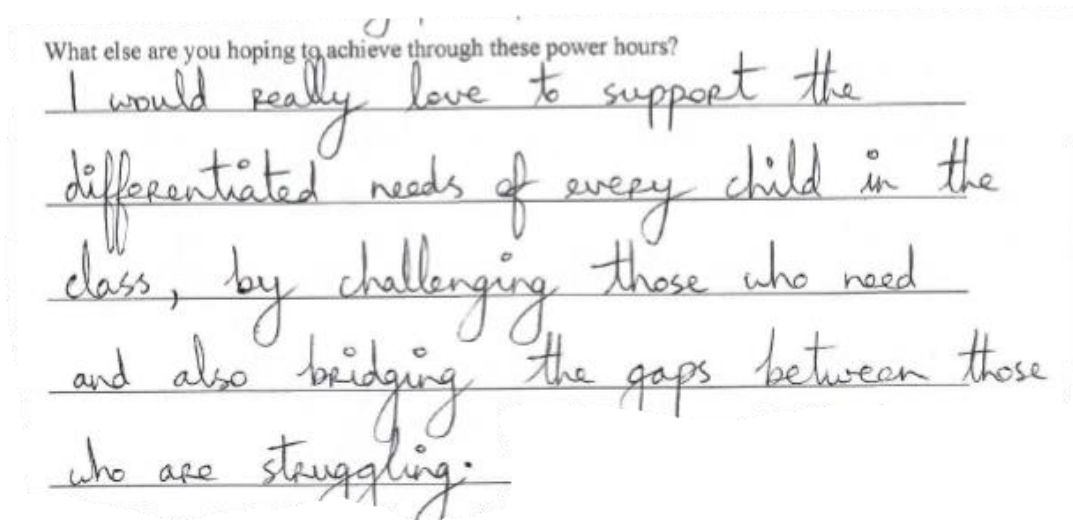 What else are you hoping to achieve through these power hours?
I would really love to support the
differentiated needs of every child in the
class, by challenging those who need
and also bridging the gaps between those
who are struggling.